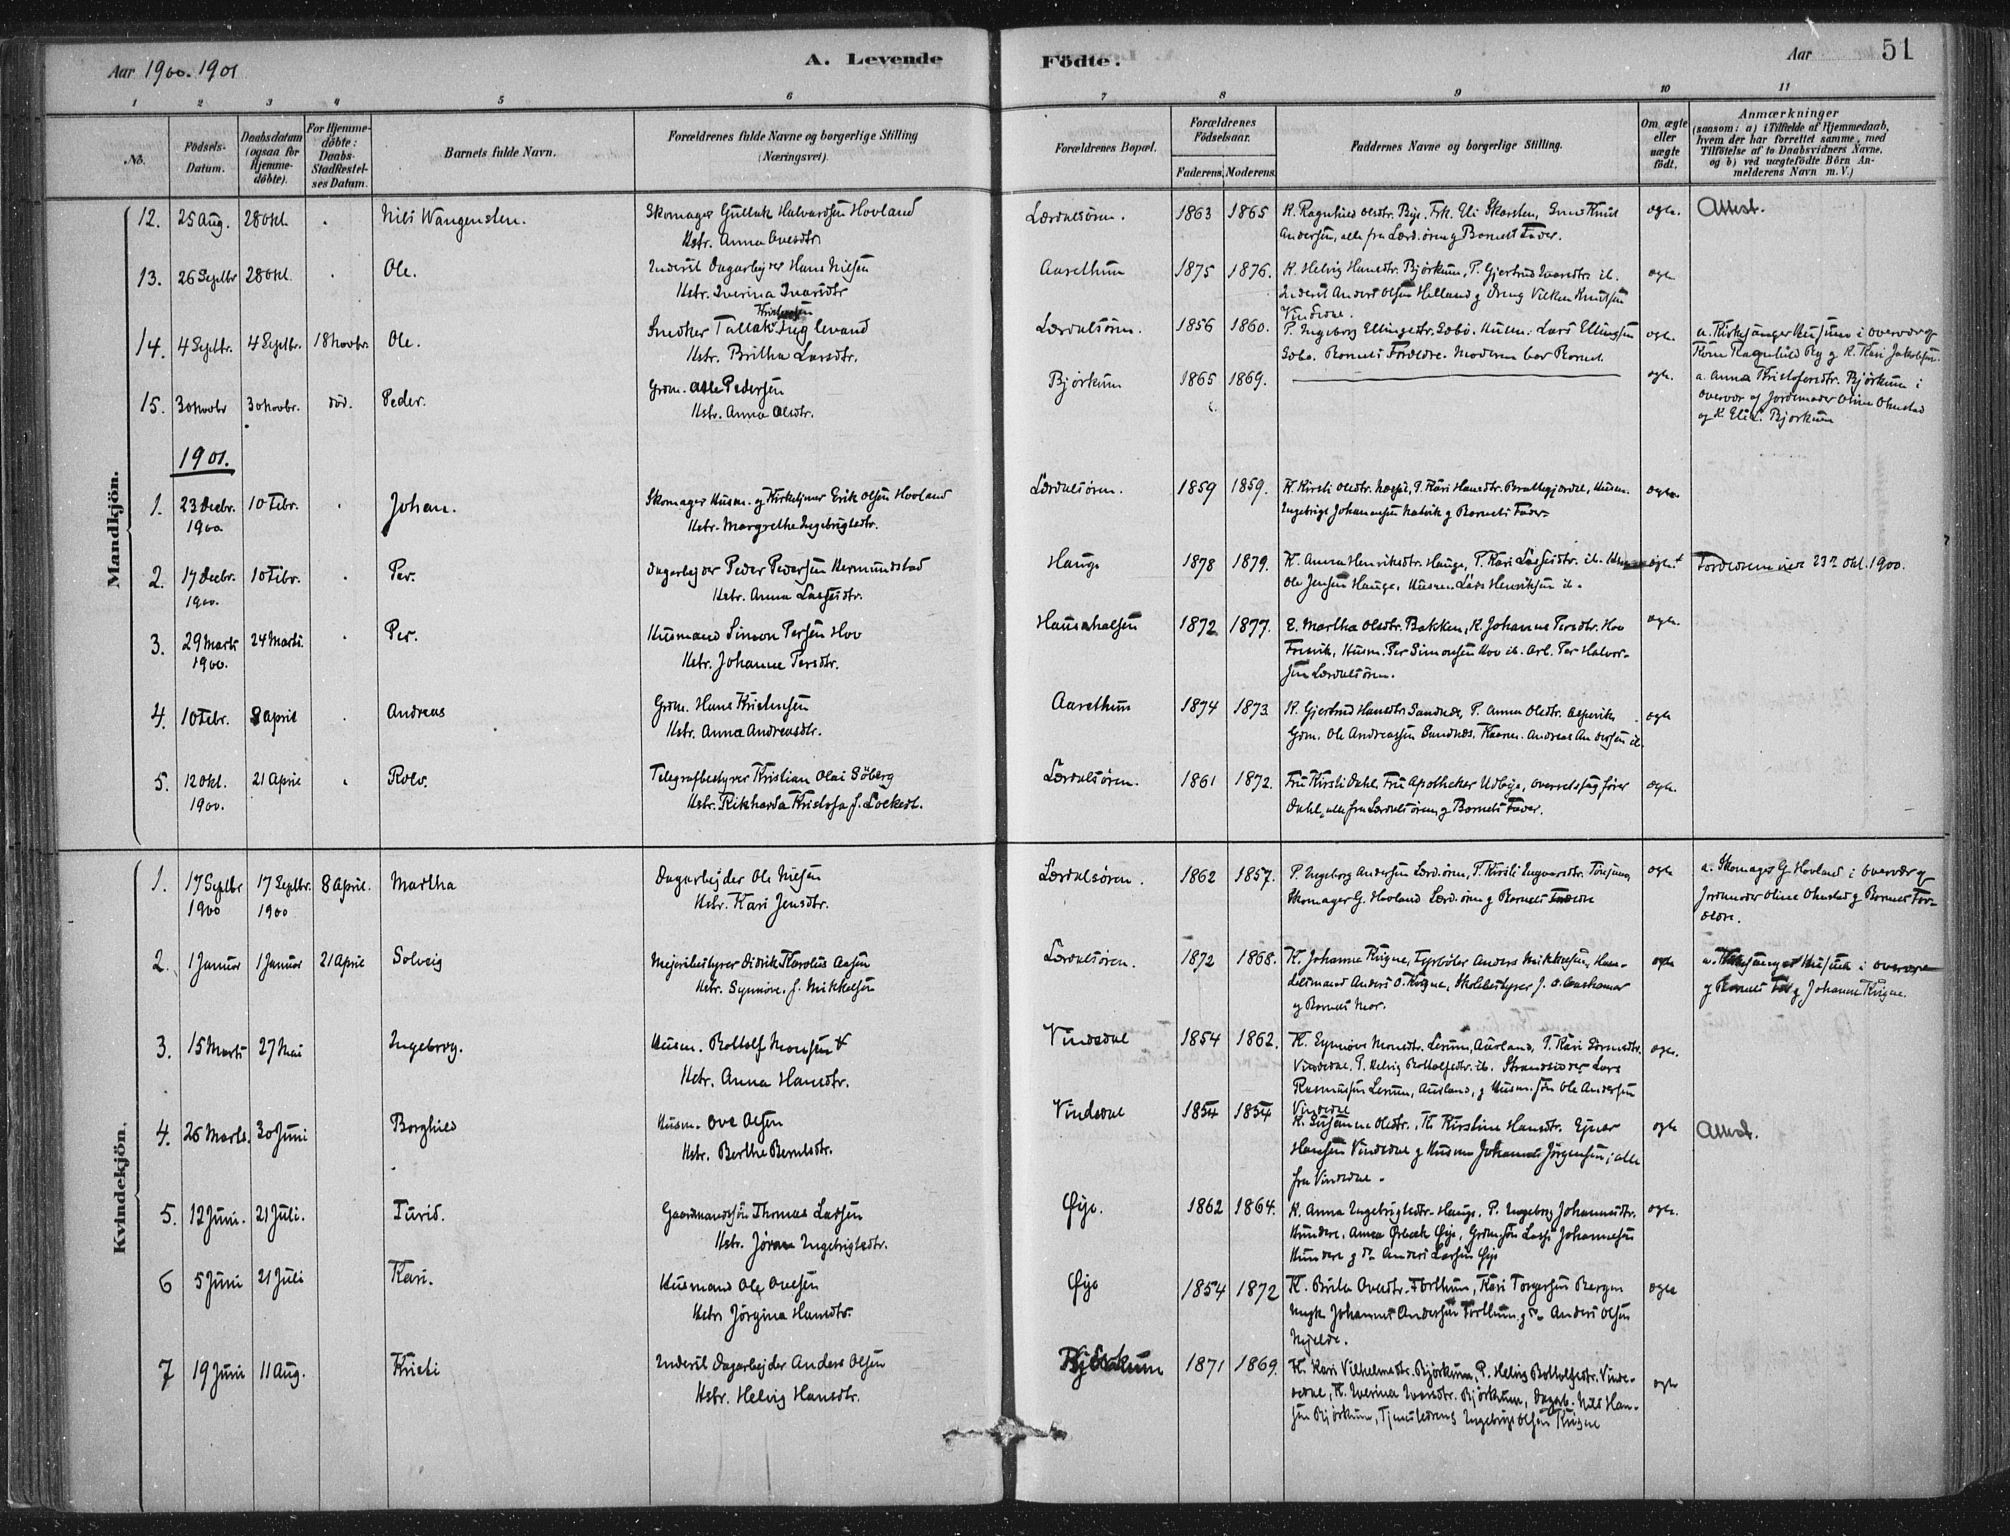 Aar 1900. 1901
A. Levende
Födte.
Aar
51
1 2 3 4 5 6 7 8 9 10 11
No.
Födsels-
Datum.
Daabsdatum
(ogsaa for
Hjemme-
døbte).
For Hjemme-
døbte:
Daabs-
Stadfæstel-
ses Datum.
Barnets fulde Navn.
Forældrenes fulde Navne og borgerlige Stilling
(Næringsvei).
Forældrenes Bopæl.
Forældrenes
Födselsaar.
Faderens. Moderens.
Faddernes Navne og borgerlige Stilling.
Om ægte
eller
uægte
født.
Anmærkninger
(saasom: a) i Tilfælde af Hjemmedaab,
hvem der har forrettet samme, med
Tilföielse af to Daabsvidners Navne,
og b) ved uægtefödte Börn An-
melderens Navn m. V.)
Mandkjön.
12. 25 Aug. 28 Okt. Nils Wangensten. Skomager Gullak Halvardsen Hovland
Hstr. Anna Ovesdtr.
Lærdalsören. 1863 1865 K. Ragnhild Olsdtr. Bye. Frk. Eli Skarsten, Knut
Andersen, alle fra Lærd.ören g Barnets Fader.
egte. Attest.
13. 26 Septbr 28 Okt. Ole. Inderst Dagarbejder Hans Nilsen
Hstr. Iverina Ivarsdtr
Aarethun 1875 1876. K. Helvig Hansdtr. Bjørkum, P. Gjertrud Ivarsdtr ib.
Inderst Anders Olsen Helland g Dreng Vilken Knutsen
Vindedal.
egte
14. 4 Septbr. 4 Septbr. 18 Novbr. Ole. Snedker Tallak
Hstr. Britha Larsdtr.
Lærdalsören. 1856 1860. P. Ingeborg Ellingsdtr. Sæbö. Husm. Lars Ellingsen
Sæbö. Barnets Forældre. Moderen bar Barnet.
egte. a. Kirkesanger Husum i overvær af
Kone Ragnhild Ry og K. Kari Jakobsen.
15. 30 Novbr 30 Novbr. død. Peder. Grdm. Atle Pedersen
Hstr. Anna Olsdtr.
Bjørkum 1865 1869. egte. a. Anna Kristofersdtr. Bjørkum i
overvær af Jordemoder Oline Ohnstad
og K. Eli L. Bjørkum
1901.
1. 23 Decbr. 10 Febr. Johan. Skomager Husm. g Kirketjener Erik Olsen Hovland
1900. Hstr. Margrethe Ingebrigtsdtr.
Lærdalsören. 1859 1859. K. Kirsti Olsdtr. Næsse, P. Kari Hansdtr. Brattegjerde, Husm.
Ingebrigt Johannesen Natvik g Barnets Fader.
egte
2. 17 Decbr. 10 Febr. Per. Dagarbejder Peder Pedersen Hermundstad
1900. Hstr. Anna Lassesdtr.
Hauge 1878 1879. K. Anna Henriksdtr. Hauge, P. Kari Lassesdtr. ib.
Ole Jensen Hauge, Husm. Lars Henriksen ib.
egte Forældrene viet 23de Okt. 1900.
3. 29 Marts 24 Marts. Per. Husmand Simon Persen Hov
1900. Hstr. Johanne Persdtr.
1872 1877. E. Martha Olsdtr. Bakken, K. Johanne Persdtr. Hov
Husm. Per Simonsen Hov ib. Arb. Per Halvor-
sen Lærdalsören.
egte.
4. 10 Febr. 8 April Andreas Grdm. Hans Kristensen
Hstr. Anna Andreasdtr.
Aarethun 1874 1873. K. Gjertrud Hansdtr. Sandnes, P. Anna Olsdtr. Aspevik
Grdm. Ole Andreassen Sandnæs. Andreas Andersen ib.
egte
5. 12 Okt. 21 April Rolv. Telegrafbestyrer Kristian Olai Söberg
1900. Hstr. Rikharda Kristofa f. Lockert.
Lærdalsören. 1861 1872. Fru Kirsti Dahl, Fru Apotheker Udbye, Overretssagförer
Dahl, alle fra Lærdalsören g Barnets Fader.
egte.
Kvindekjön.
1. 17 Septbr 17 Septbr. 8 April. Martha Dagarbejder Ole Nilsen
1900 1900 Hstr. Kari Jensdtr.
Lærdalsören. 1862 1857. P. Ingeborg Andersen Lærd.ören, P. Kirsti Ingvardtr. Tönjum,
Skomager G. Hovland Lærd.ören g Barnets Forældre
egte a. Skomager G. Hovland i overvær af
Jordmoder Oline Ohnstad g Barnets For-
ældre.
2. 1 Januar 1 Januar 21 April Solveig Mejeribestyrer Didrik Karolus Aasen
Hstr. Synnöve f. Mikkelsen
Lærdalsören. 1872 1868. K. Johanne Kvigne, Fyrböter Anders Mikkelsen, Han-
delsmand Anders O. Kvigne, Skolebestyrer J.
g Barnets Mor.
egte a. Kirkesanger Husum i overvær
g Barnets Far g Johanne Kvigne.
3. 15 Marts 27 Mai Ingeborg. Husm. Bottolf Monsen
Hstr. Anna Hansdtr.
Vindedal 1854 1862. K. Synnöve Monsdtr. Lerum, Aurland, P. Kari
Vindedal, P. Helvig Bottolfsdtr. ib. Strandsidder Lars
Rasmussen Lerum, Aurland, g Husm. sön Ole Andersen
Vindedal
egte.
4. 26 Marts. 30 Juni Borghild Husm. Ove Olsen
Hstr. Berthe Berntsdtr.
Vindedal 1854 1854 K. Susanne Olsdtr., K. Kirstine Hansdtr. Ejnar
Hansen Vindedal g Husm Johannes Jörgensen; alle
fra Vindedal.
egte Attest.
5. 12 Juni. 21 Juli. Turid. Gaardmandssön Thomas Lassen
Hstr. Jörane Ingebrigtsdtr.
Øye. 1862 1864. K. Anna Ingebrigtsdtr. Hauge, P. Ingeborg Johannesdtr.
Hundere, Anna Øye, Grdm.sön Lasse Johannesen
Hundere g do Anders Larsen Øye
egte.
6 5 Juni 21 Juli Kari. Husmand Ole Ovesen
Hstr Jörgine Hansdtr.
Øye 1854 1872 K. Brita Ovedtr. Forthun, Kari Torgersen Bergen
Ungk. Johannes Andersen Forthun g do Anders Olsen
Hjelde.
egte
7 19 Juni 11 Aug. Kristi Inderst Dagarbejder Anders Olsen
Hstr. Helvig Hansdtr.
Bjørkum 1871 1869. K. Kari Vilhelmsdtr. Bjørkum, P. Helvig Bottolfsdtr. Vinde-
dal, K. Iverina Ivarsdtr. Bjørkum, Dagarb. Nils Han-
sen Bjørkum, Tjenestedreng Ingebrigt Olsen Kvigne
egte